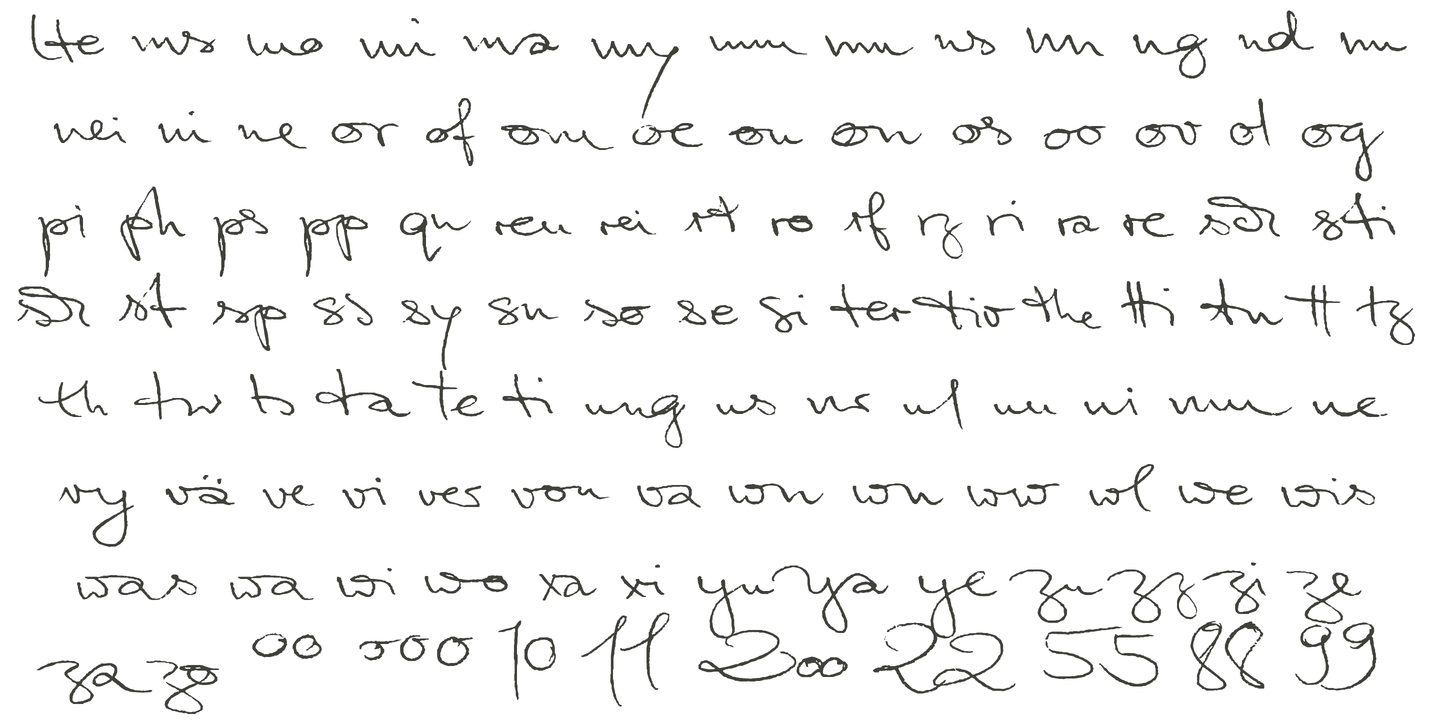 He ms mo mi ma my mm mu ns nn ng nd nu
nei ni ne or of om oe ou on os oo ov ol og
pi ph ps pp qu reu rei rt ro rf rz ri ra re sch sti
sch st sp ss sy su so se si ter tio the tti tu tt tz
th tw ts ta te ti ung us ur ul uu ui um ue
vy vä ve vi ver von va wn wu ww wl we wis
was wa wi wo xa xi yu ya ye zu zz zi ze
za zo 00 000 10 11 200 22 55 88 99